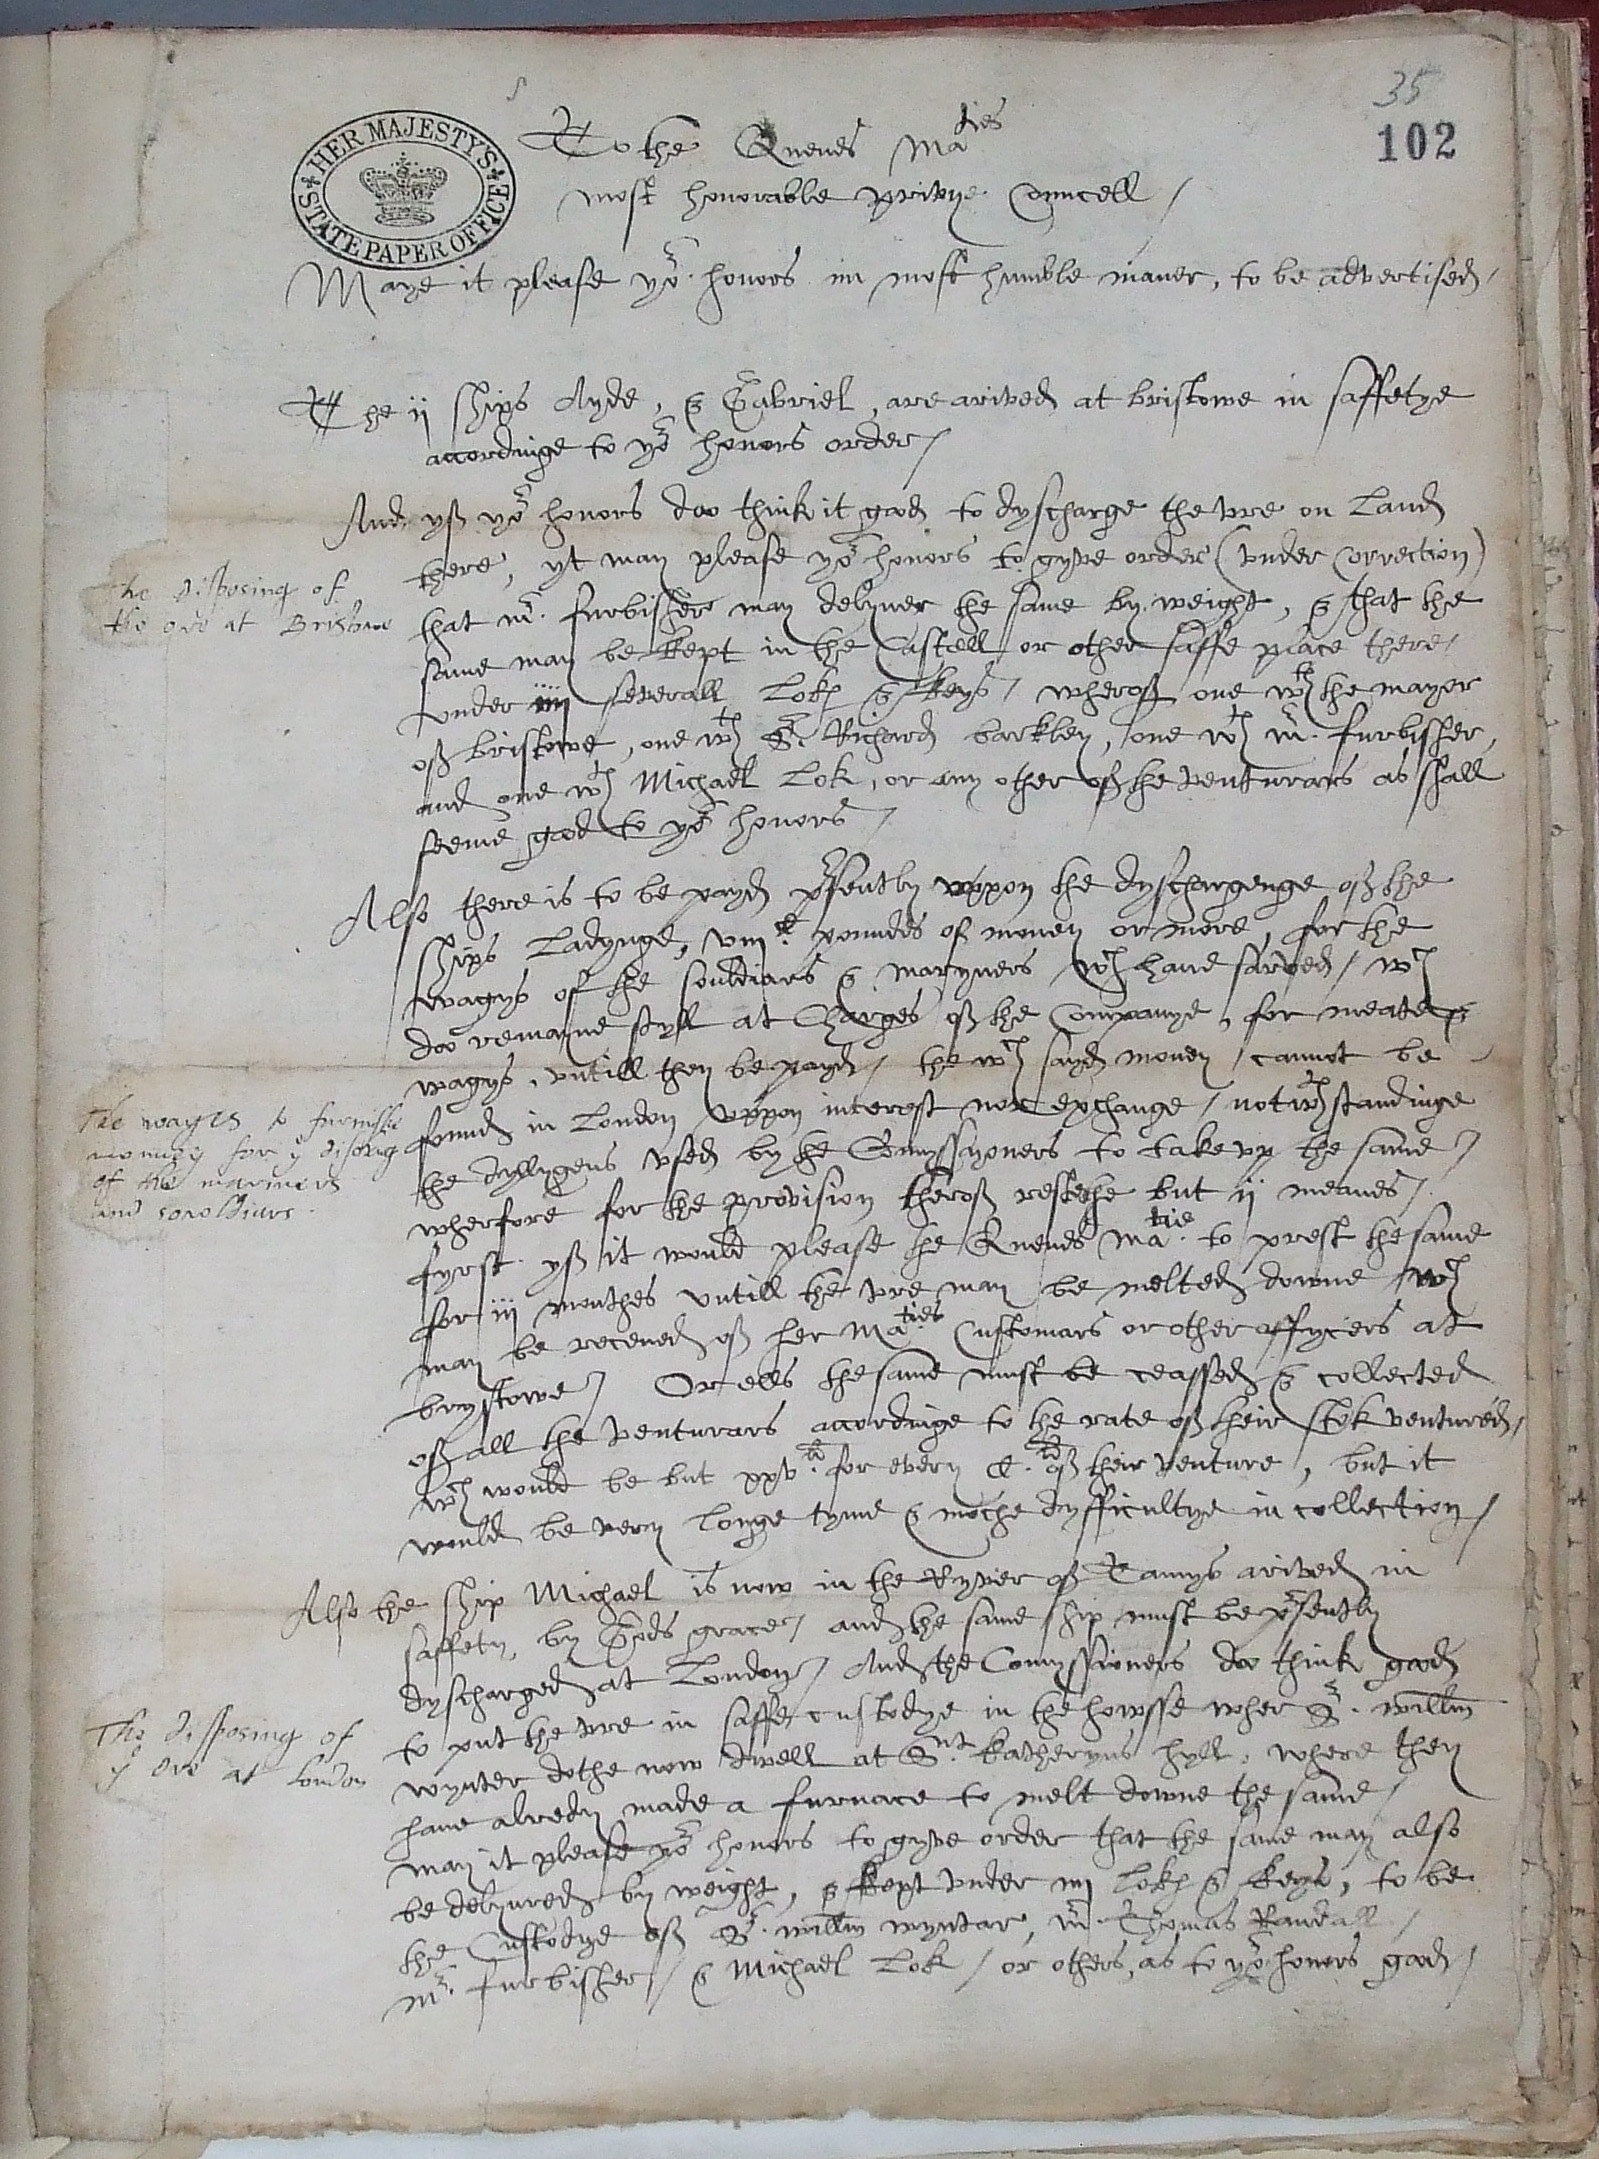 35
102
HER MAJESTY'S
STATE PAPER OFFICE
To the Quenes Ma^ties
most honorable privye Councell /
Maye it please yo^r honors in most humble maner, to be advertised /
The ij ships Ayde, & Gabriel, are arived at bristowe in saffetye
accordinge to yo^r honors order /
And yf yo^r honors doo think it good to dyscharge the vre on Land
there, yt may please yo^r honors to gyve order (vnder Correction)
that m^r. furbisher may delyuer the same by weight, & that the
same may be kept in the Castell or other saffe place there /
vnder iiij severall Lokes & keys / wherof one w^th the mayor
of bristowe, one w^th S^r. Richard barkley, one w^th m^r. furbisher,
and one w^th Michael Lok, or any other of the venturars as shall
seeme good to yo^r honors /
The disposing of
the ore at Bristowe
Also there is to be payd p^rsently vppon the dyschargenge of the
ships Ladynge, viij^C. poundes of money or more, for the
wagys of the souldiars & maryners w^ch haue sarved / w^ch
doo remayne styll at Charges of the Companye, for meate &
wagys, vntill they be payd / the w^ch sayd money / cannot be
found in London vppon interest nor exchange / notw^thstandinge
the dyllygens vsed by the Comyssyoners to take vp the same /
wherfore for the provision therof restethe but ij meanes /
fyrst. yf it would please the Quenes Ma^tie. to prest the same
for iij monthes vntill the vre may be melted downe w^ch
may be receued of her Ma^ties Customars or other offycers at
brystowe / Or ells the same must be ceassed & collected
of all the venturars accordinge to the rate of their stok ventured /
w^ch would be but xxv^li. for every C.^li of their venture, but it
would be very longe tyme & moche dyfficultye in collection /
The wayes to furnisshe
money for y^e
of the mariners
and souldiars.
Also the ship Michael is now in the Ryver of Tamys arived in
saffety, by Gods grace / and the same ship must be p^rsently
dyscharged at London / And the Comyssioners doo think good
to put the vre in saffe custodye in the howsse wher S^r. willm
wynter dothe now dwell at S^nt katheryns hyll, where they
haue alredy made a furnace to melt downe the same /
may it please yo^r honors to gyve order that the same may also
be delyured by weight, & kept vnder iiij Lokes & keys, to be
the Custodye of S^r. willm wyntar, m^r. Thomas Randall /
m^r. furbisher / & Michael Lok / or others, as to yo^r honors good /
The disposing of
y^e Ore at London